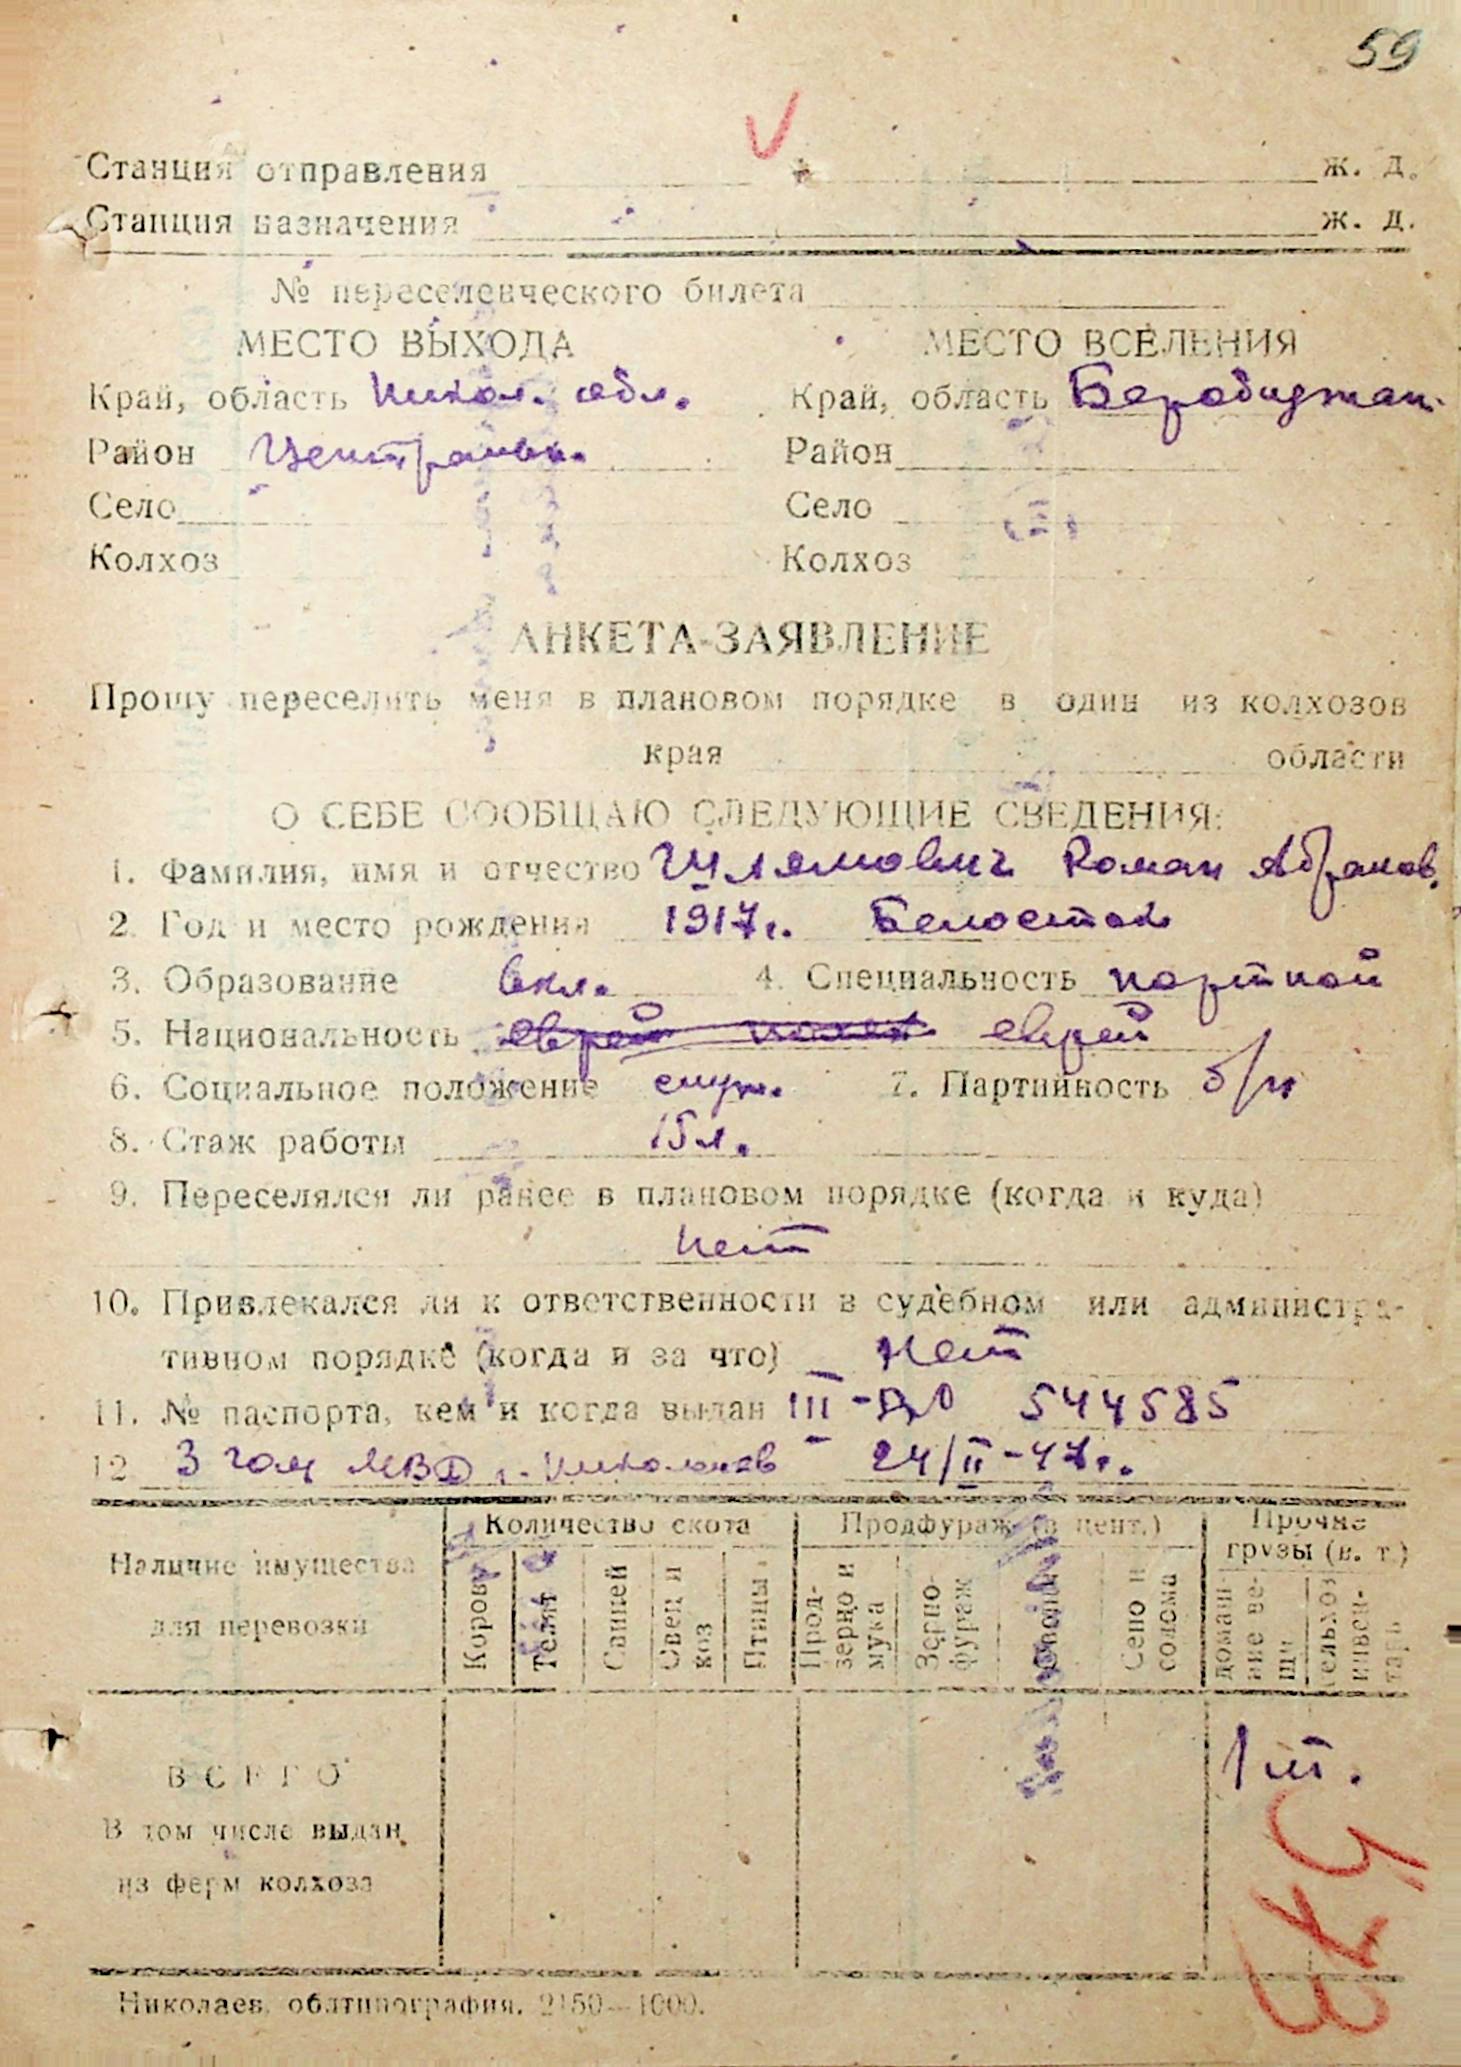 59
Станция отправления ж. д.
Станция назначения ж. д.
№ переселенческого билета
МЕСТО ВЫХОДА МЕСТО ВСЕЛЕНИЯ
Край, область Никол. обл. Край, область Беробиджан.
Район Центральн. Район
Село Село
Колхоз Колхоз
АНКЕТА-ЗАЯВЛЕНИЕ
Прошу переселить меня в плановом порядке в один из колхозов
края области
О СЕБЕ СООБЩАЮ СЛЕДУЮЩИЕ СВЕДЕНИЯ:
1. Фамилия, имя и отчество Шлямович Роман Абрамов.
2. Год и место рождения 1917г. Белосток
3. Образование 6кл. 4. Специальность портной
5. Национальность еврей поляк еврей
6. Социальное положение служ. 7. Партийность б/п
8. Стаж работы 15л.
9. Переселялся ли ранее в плановом порядке (когда и куда)
Нет
10. Привлекался ли к ответственности в судебном или администра-
тивном порядке (когда и за что) Нет
11. № паспорта, кем и когда выдан III-ЯО 544585
12 3 гом МВД г. Николаев 24/II-47г.
Наличие имущества для перевозки
Количество скота
Продфураж (в цент.)
Прочие грузы (в. т.)
Коров
Телят
Свиней
Овец и коз
Птицы
Прод-зерно и мука
Зерно-фураж
Овощи
Сено и солома
домаш-ние ве-щи
сельхоз инвен-тарь
ВСЕГО 1т.
В том числе выдан.
из ферм колхоза
Николаев, облтипография. 2150—1000.